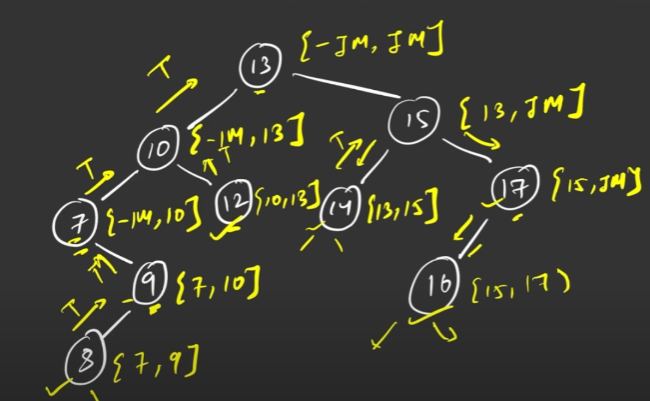 13 [-IM, IM]
T
15 [13, IM]
10 [-IM, 13]
T
T
T
7 [-IM, 10]
12 [10, 13]
14 [13, 15]
17 [15, IM]
T
9 [7, 10]
16 [15, 17)
T
8 [7, 9]